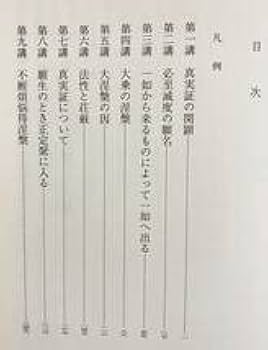 目次
凡例
第一講 真実証の開顕
第二講 必至滅度の願名
第三講 一如から来るものによって一如へ出る
第四講 大乗の涅槃
第五講 大涅槃の因
第六講 法性と荘厳
第七講 真実証について
第八講 願生のとき正定聚に入る
第九講 不断煩悩得涅槃